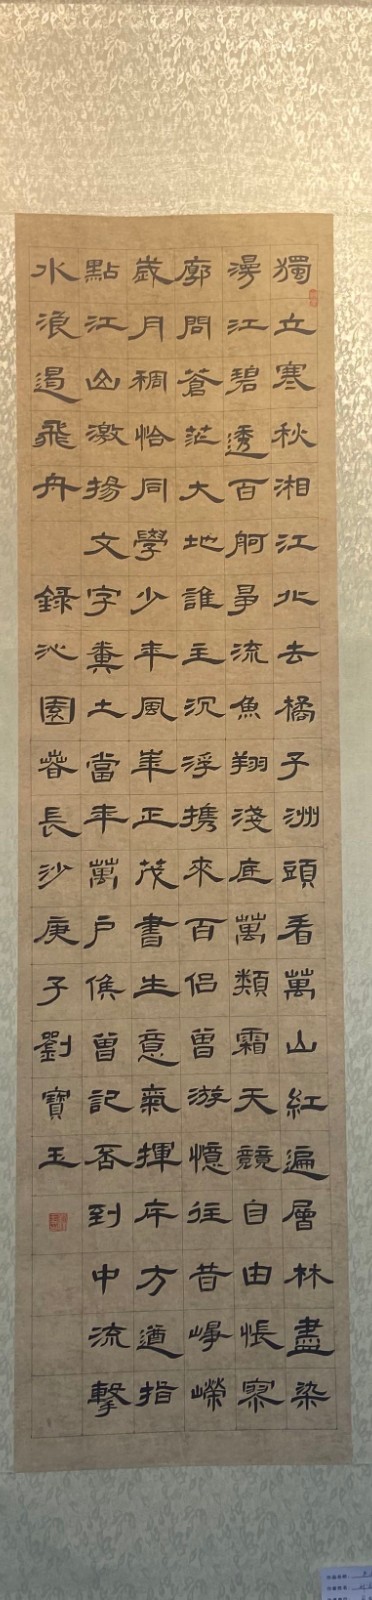 獨立寒秋湘江北去橘子洲頭看萬山紅遍層林盡染
漫江碧透百舸爭流魚翔淺底萬類霜天競自由悵寥
廓問蒼茫大地誰主沉浮携來百侣曾游憶往昔崢嶸
歲月稠恰同學少年風華正茂書生意氣揮斥方遒指
點江山激揚文字糞土當年萬户侯曾記否到中流擊
水浪遏飛舟 録沁園春長沙庚子劉寶玉